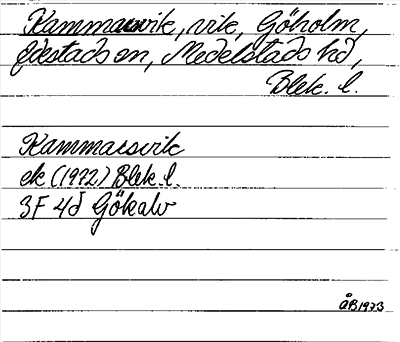 Kammarsvik, vik, Göholm,
Edestads sn, Medelstads hd,
Blek. l.
Kammarsvik
ek (1972) Blek. l.
3F 4d Gökalv
ÅB 1973